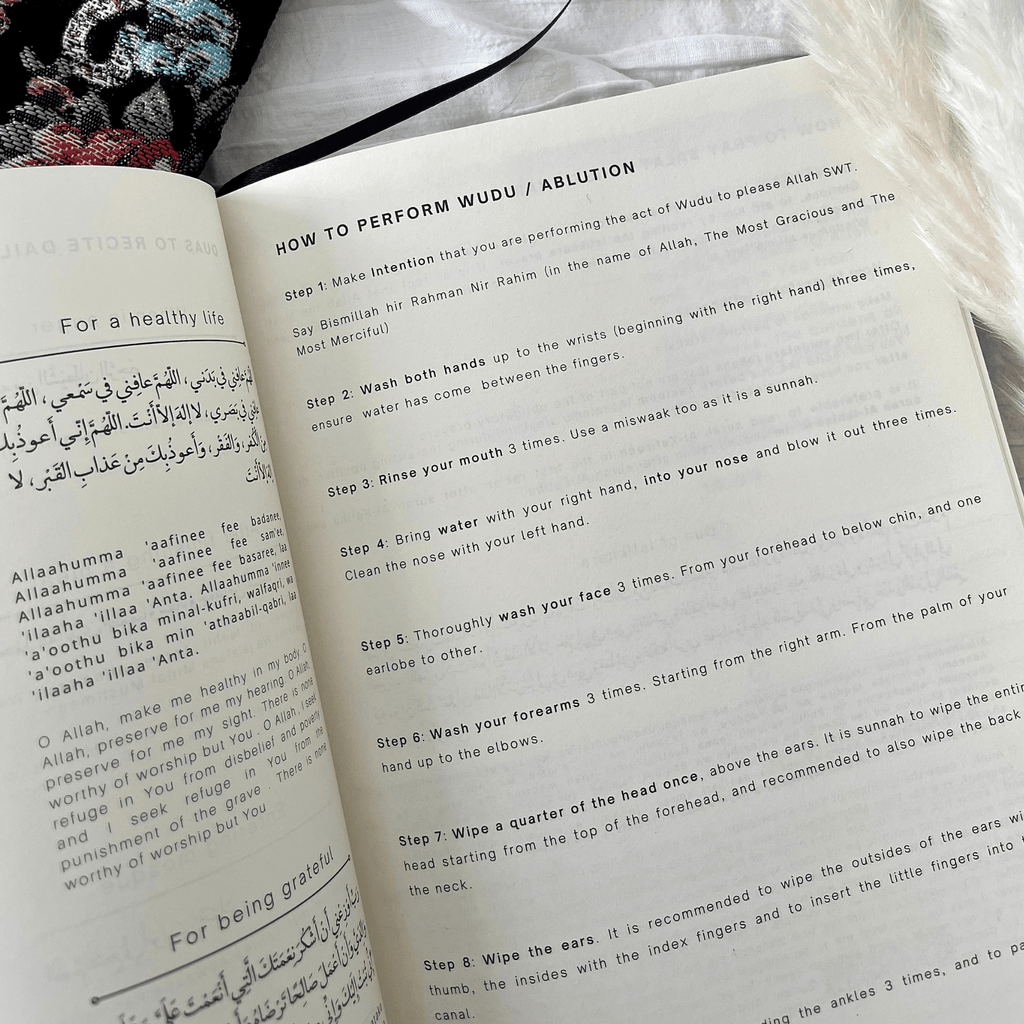 For a healthy life
اللّهُمَّ عافِني في بَدَني ، اللّهُمَّ عافِني في سَمْعي ، اللّهُمَّ
عافِني في بَصَري ، لا إلهَ إلاّ أَنْتَ. اللّهُمَّ إِنّي أَعوذُ بِكَ
مِنَ الْكُفر ، وَالفَقْر ، وَأَعوذُ بِكَ مِنْ عَذابِ القَبْر ، لا
إلهَ إلاّ أَنْتَ
Allaahumma 'aafinee fee badanee,
Allaahumma 'aafinee fee sam'ee,
Allaahumma 'aafinee fee basaree, laa
'ilaaha 'illaa 'Anta. Allaahumma 'innee
'a'oothu bika minal-kufri, walfaqri, wa
'a'oothu bika min 'athaabil-qabri, laa
'ilaaha 'illaa 'Anta.
O Allah, make me healthy in my body O
Allah, preserve for me my hearing O Allah,
preserve for me my sight. There is none
worthy of worship but You . O Allah , I seek
refuge in You from disbelief and poverty
and I seek refuge in You from the
punishment of the grave . There is none
worthy of worship but You
For being grateful
رَبِّ أَوْزِعْنِي أَنْ أَشْكُرَ نِعْمَتَكَ الَّتِي أَنْعَمْتَ عَلَيَّ
وَأَنْ أَعْمَلَ صَالِحًا تَرْضَاهُ
HOW TO PERFORM WUDU / ABLUTION
Step 1: Make Intention that you are performing the act of Wudu to please Allah SWT.
Say Bismillah hir Rahman Nir Rahim (in the name of Allah, The Most Gracious and The
Most Merciful)
Step 2: Wash both hands up to the wrists (beginning with the right hand) three times,
ensure water has come between the fingers.
Step 3: Rinse your mouth 3 times. Use a miswaak too as it is a sunnah.
Step 4: Bring water with your right hand, into your nose and blow it out three times.
Clean the nose with your left hand.
Step 5: Thoroughly wash your face 3 times. From your forehead to below chin, and one
earlobe to other.
Step 6: Wash your forearms 3 times. Starting from the right arm. From the palm of your
hand up to the elbows.
Step 7: Wipe a quarter of the head once, above the ears. It is sunnah to wipe the entir
head starting from the top of the forehead, and recommended to also wipe the back
the neck.
Step 8: Wipe the ears. It is recommended to wipe the outsides of the ears wi
thumb, the insides with the index fingers and to insert the little fingers into
canal.
ding the ankles 3 times, and to pa